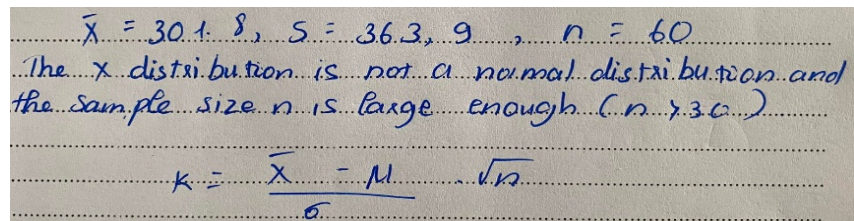 x̄ = 301.8, S = 363,9, n = 60
The x distribution is not a normal distribution and
the sample size n is large enough (n > 30)
K = x̄ - μ / σ . √n